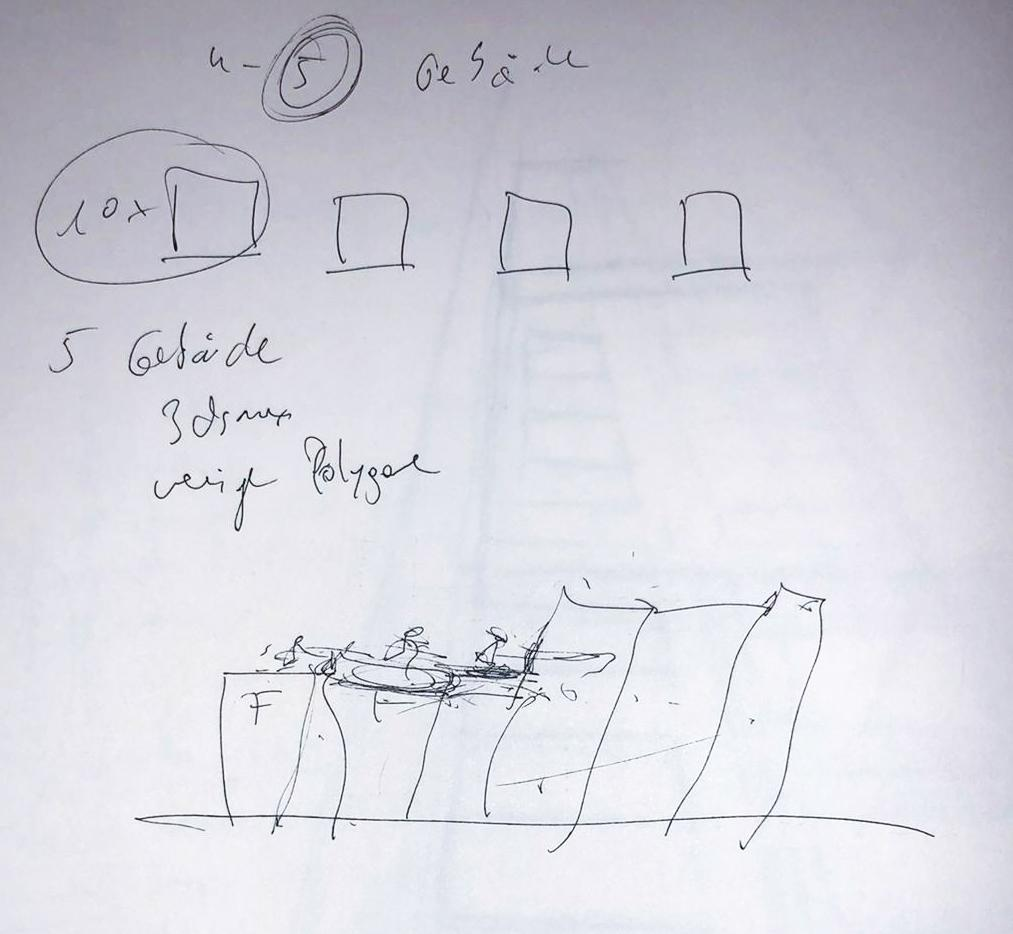 4-5 Gebäude
10x
5 Gebäude
3dsmax
wenige Polygone
F